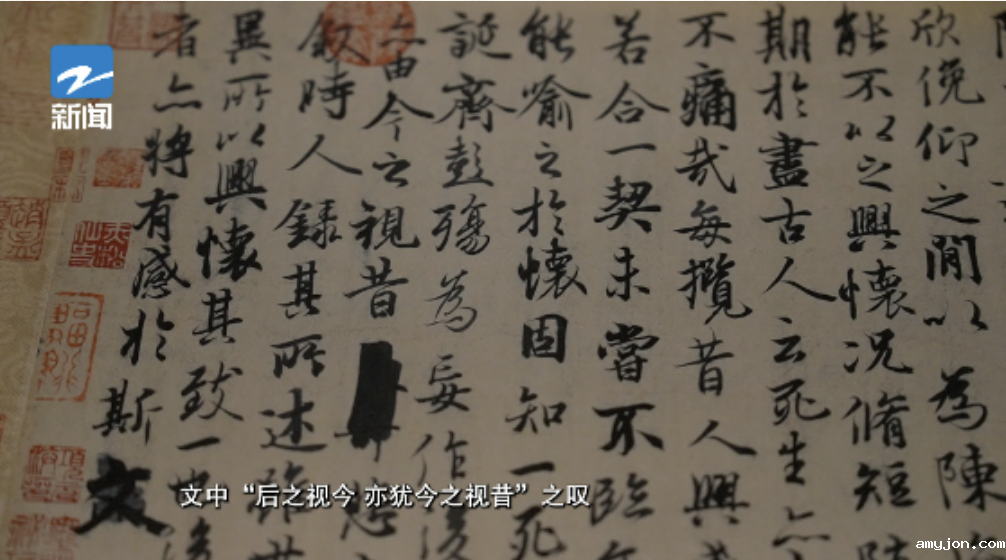 新闻
欣俛仰之閒以為陳
能不以之興懷況脩短
期於盡古人云死生亦
不痛哉每攬昔人興
若合一契未嘗不臨
能喻之於懷固知一死
誕齊彭殤為妄作後
亦由今之視昔悲
叙時人録其所述雖世
異所以興懷其致一也後
者亦將有感於斯文
文中“后之视今 亦犹今之视昔”之叹
amyjon.com